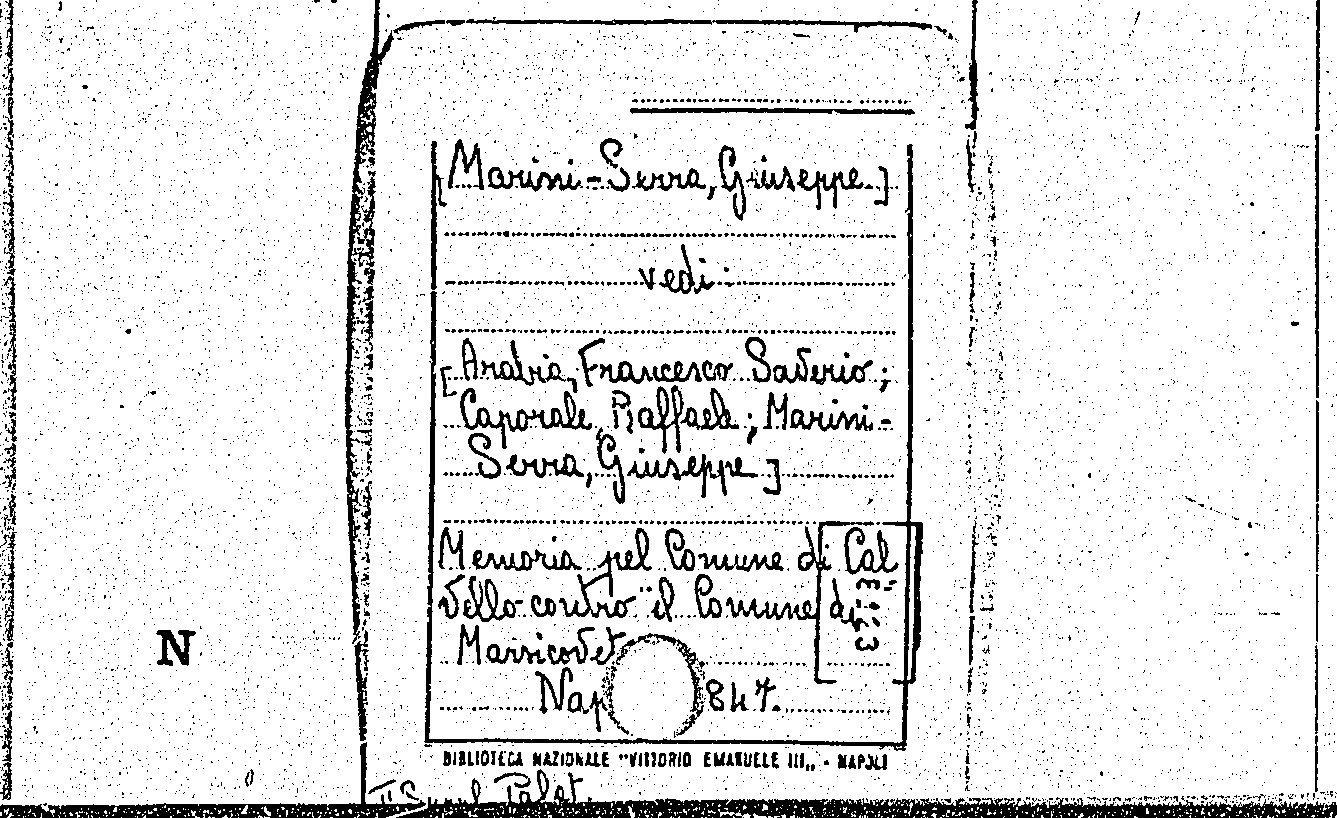 [Marini-Serra, Giuseppe.]
vedi:
[Arabia, Francesco Saverio;
Caporale, Raffaele; Marini-
Serra, Giuseppe]
Memoria pel Comune di Cal
vello contro il Comune di
Marsicovet
Nap 847.
BIBLIOTECA NAZIONALE "VITTORIO EMANUELE III„ - NAPOLI
N